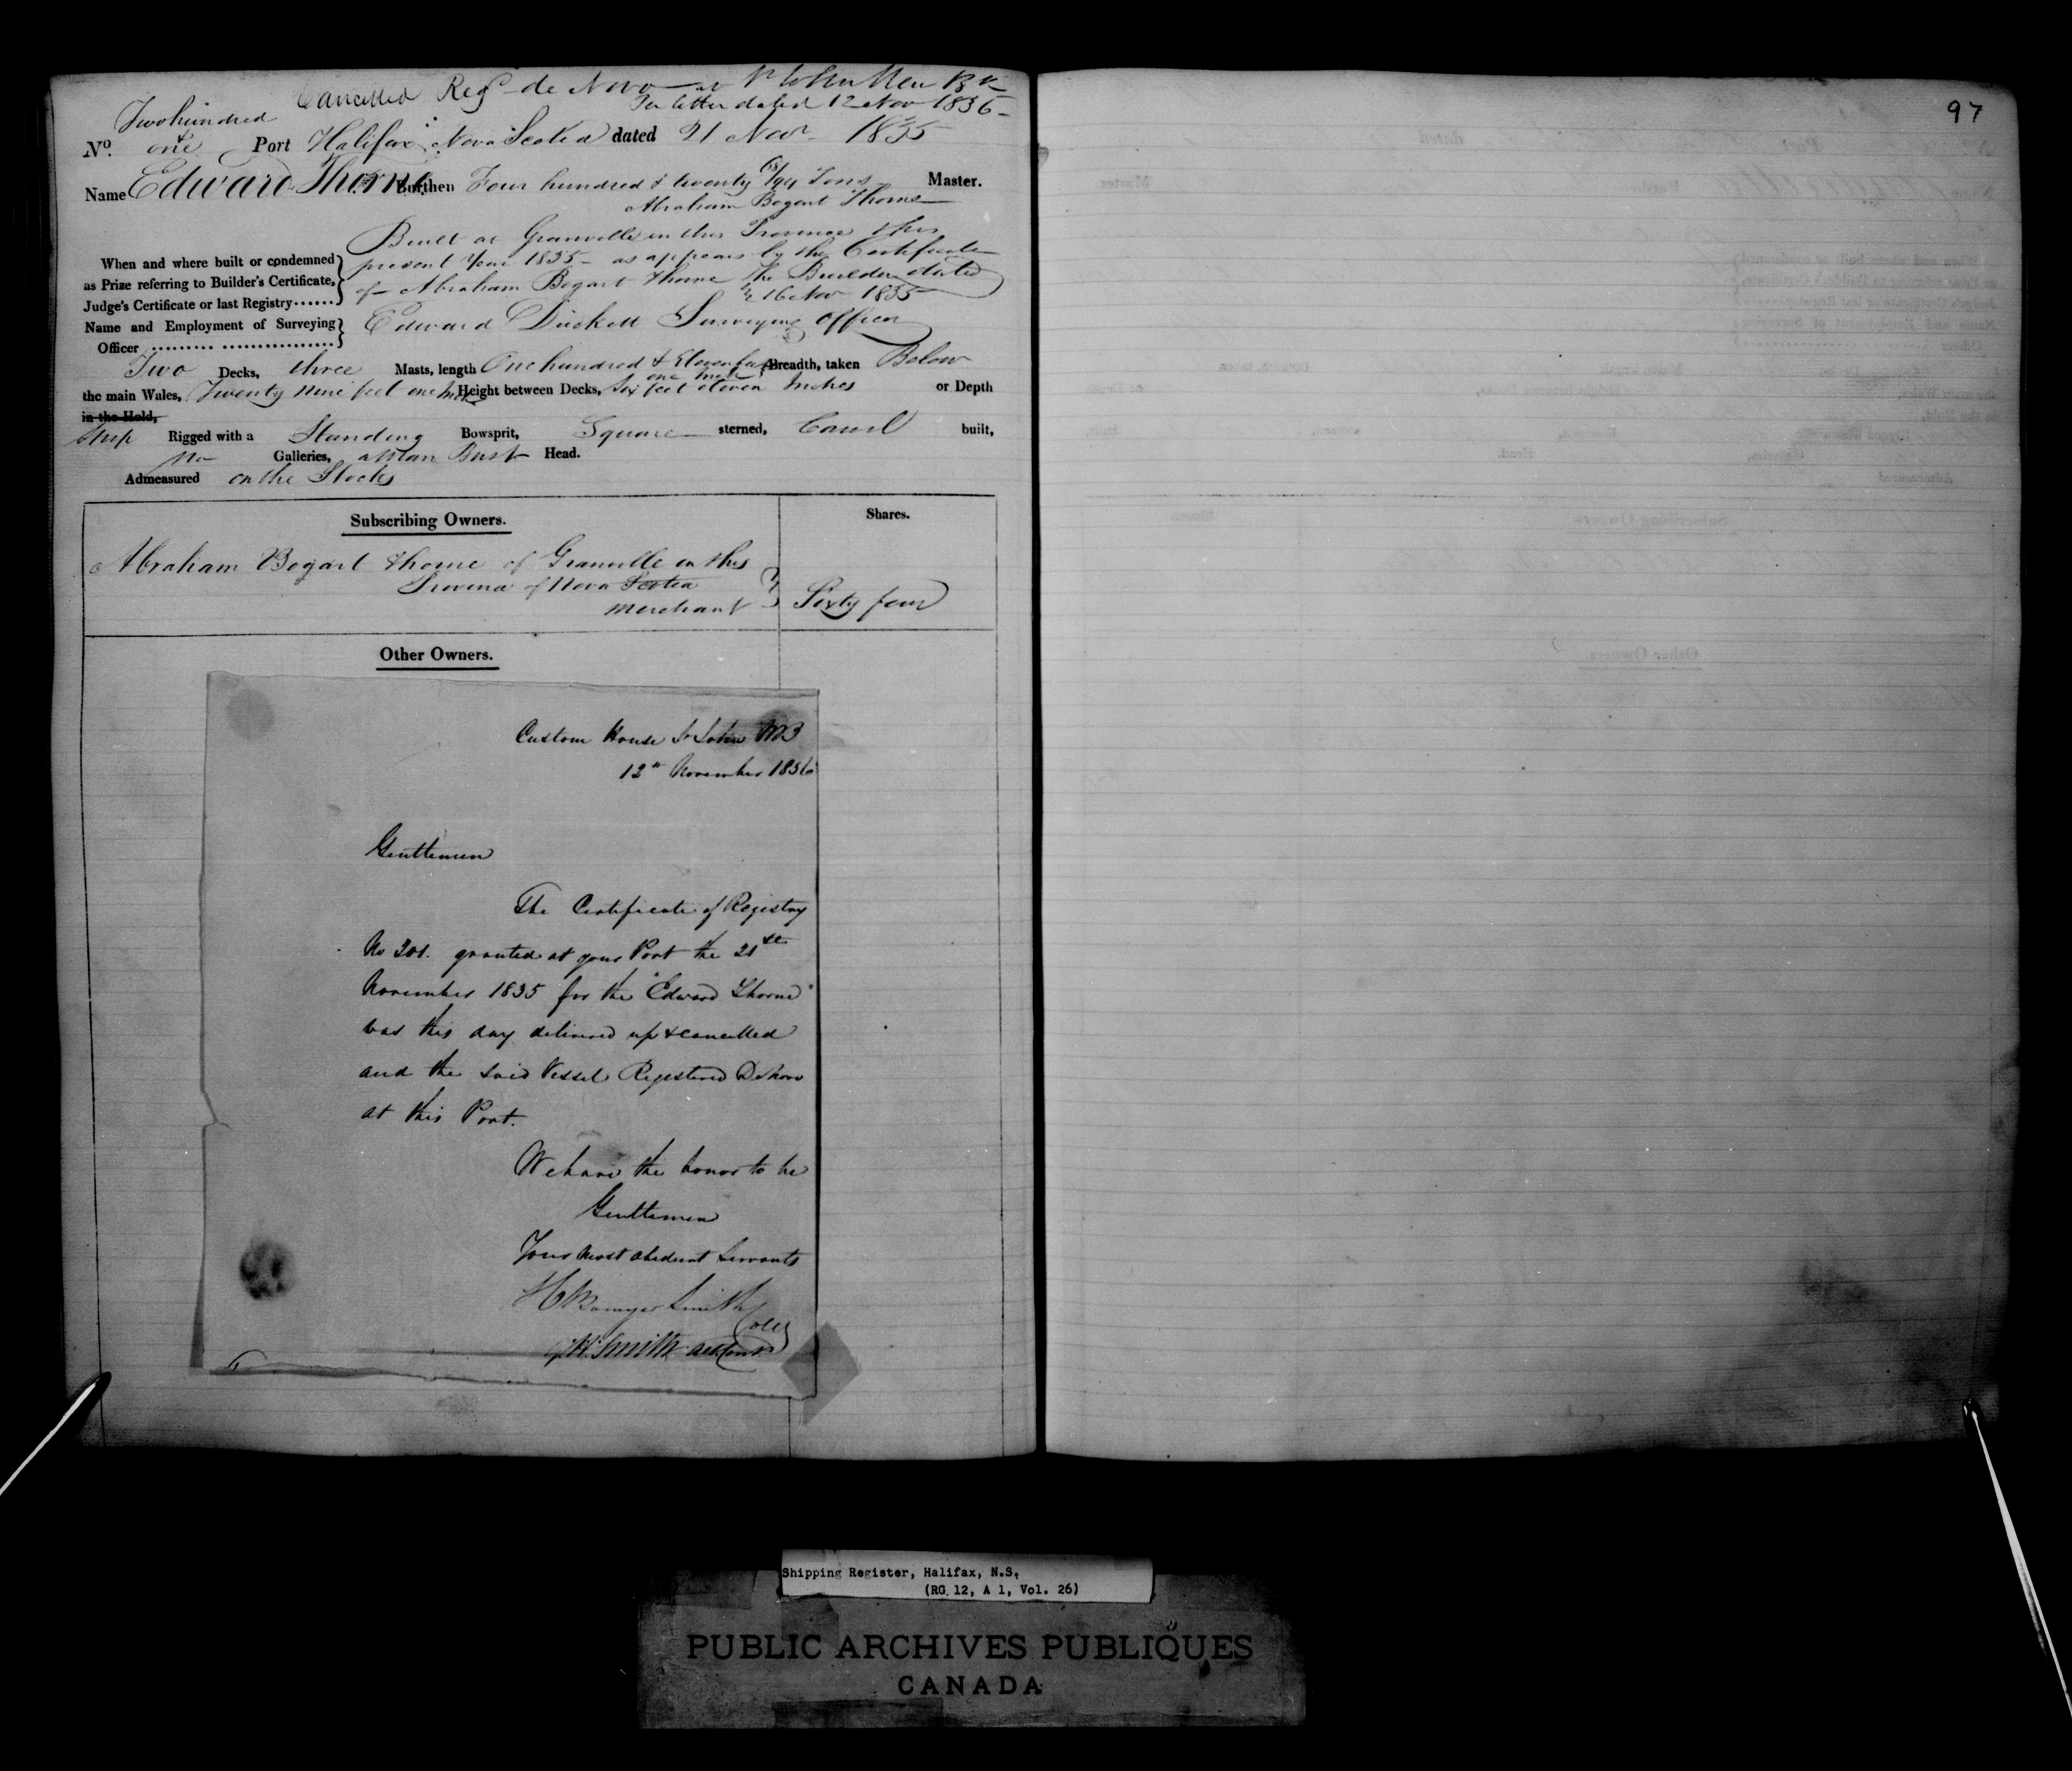 Cancelled Reg^d de Novo at St John New Bk
Per letter dated 12 Nov 1836
Two hundred
No. & one Port Halifax Nova Scotia dated 21 Nov 1835
Name Edward Thorne Burthen Four hundred & twenty /94 Tons Master.
Abraham Bogart Thorne
Built at Granville in this Province this
When and where built or condemned present Year 1835 - as appears by the Certificate
as Prize referring to Builder's Certificate, of Abraham Bogart Thorne the Builder dated
Judge's Certificate or last Registry...... 16 Nov 1835
Name and Employment of Surveying Edward Duckett Surveying Officer
Officer
Two Decks, three Masts, length One hundred & Eleven feet one inch Breadth, taken Below
the main Wales, Twenty nine feet one Inch Height between Decks, Six feet eleven Inches or Depth
in the Hold,
Ship Rigged with a Standing Bowsprit, Square sterned, Carvel built,
No Galleries, a Man Bust Head.
Admeasured on the Stocks
Subscribing Owners. Shares.
Abraham Bogart Thorne of Granville in this
Province of Nova Scotia
Merchant Sixty four
Other Owners.
Custom House St John NB
12th November 1836
Gentlemen
The Certificate of Registry
No 201. granted at your Port the 21st
November 1835 for the "Edward Thorne"
was this day delivered up & cancelled
and the said Vessel Registered De Novo
at this Port.
We have the honor to be
Gentlemen
Your most obedient Servants
H Bowyer Smith
Coll
Smith
97
Shipping Register, Halifax, N.S.
(RG 12, A 1, Vol. 26)
PUBLIC ARCHIVES PUBLIQUES
CANADA